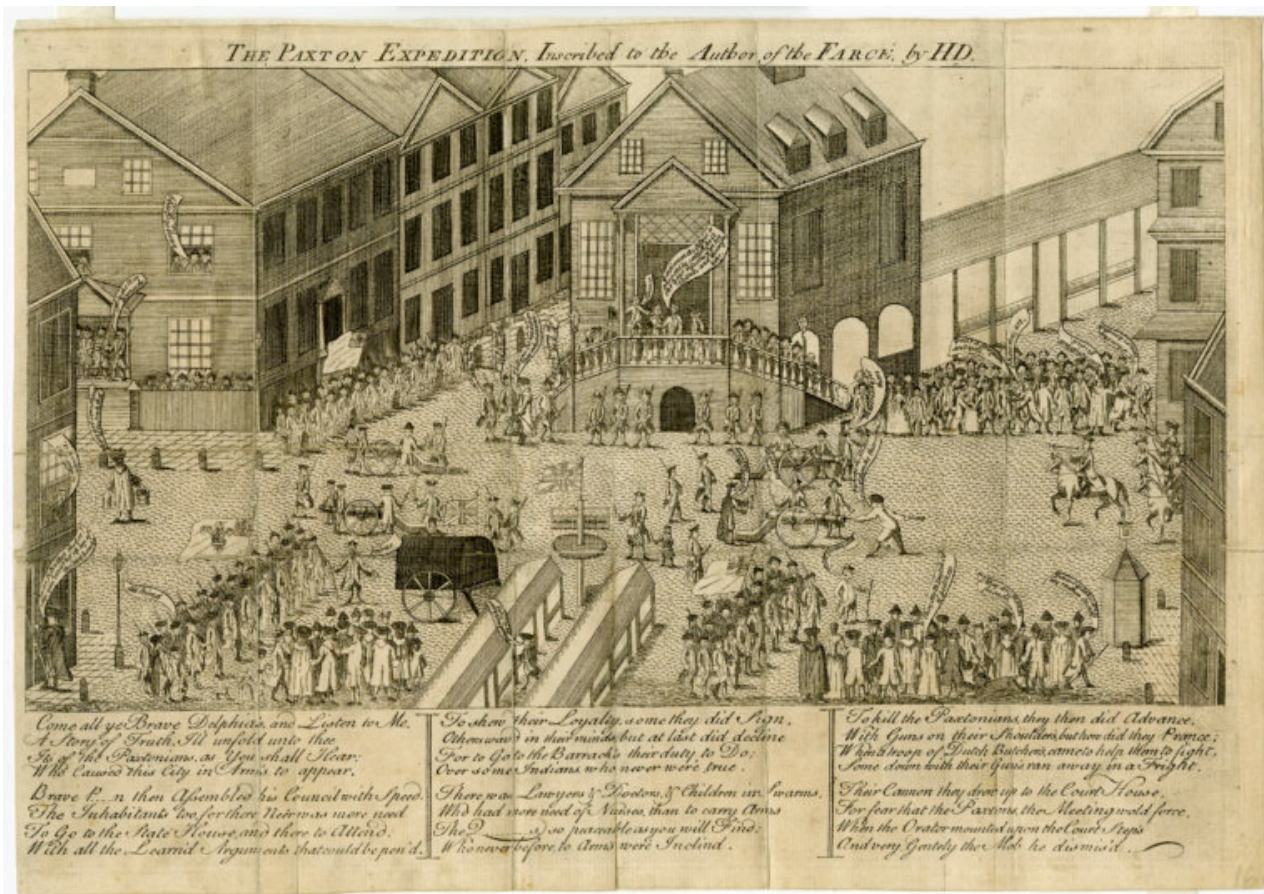 THE PAXTON EXPEDITION, Inscribed to the Author of the FARCE, by HD.
Come all ye Brave Delphia's, and Listen to Me,
A Story of Truth, I'll unfold unto thee
Its of the Paxtonians, as You shall Hear;
Who Caused this City in Arms to appear.
Brave P___n then Assembled his Council with Speed.
The Inhabitants too, for there Ne'er was more need
To Go to the State House, and there to Attend;
With all the Learn'd Arguments that could be pen'd.
To show their Loyalty, some they did Sign,
Others wav'd in their minds, but at last did decline
For to Go to the Barracks their duty to Do;
Over some Indians who never were true.
There was Lawyers & Doctors, & Children in Swarms,
Who had more need of Nurses, than to carry Arms
The Q____s, so peaceable as you will Find;
Who never before, to Arms were Inclin'd.
To kill the Paxtonians, they then did Advance,
With Guns on their Shoulders, but how did they Prance;
When a troop of Dutch Butchers, came to help them to fight,
Some down with their Guns, ran away in a Fright.
Their Cannon they drew up to the Court House,
For fear that the Paxtons, the Meeting wold force,
When the Orator mounted upon the Court Steps
And very Gentely the Mob he dismis'd.